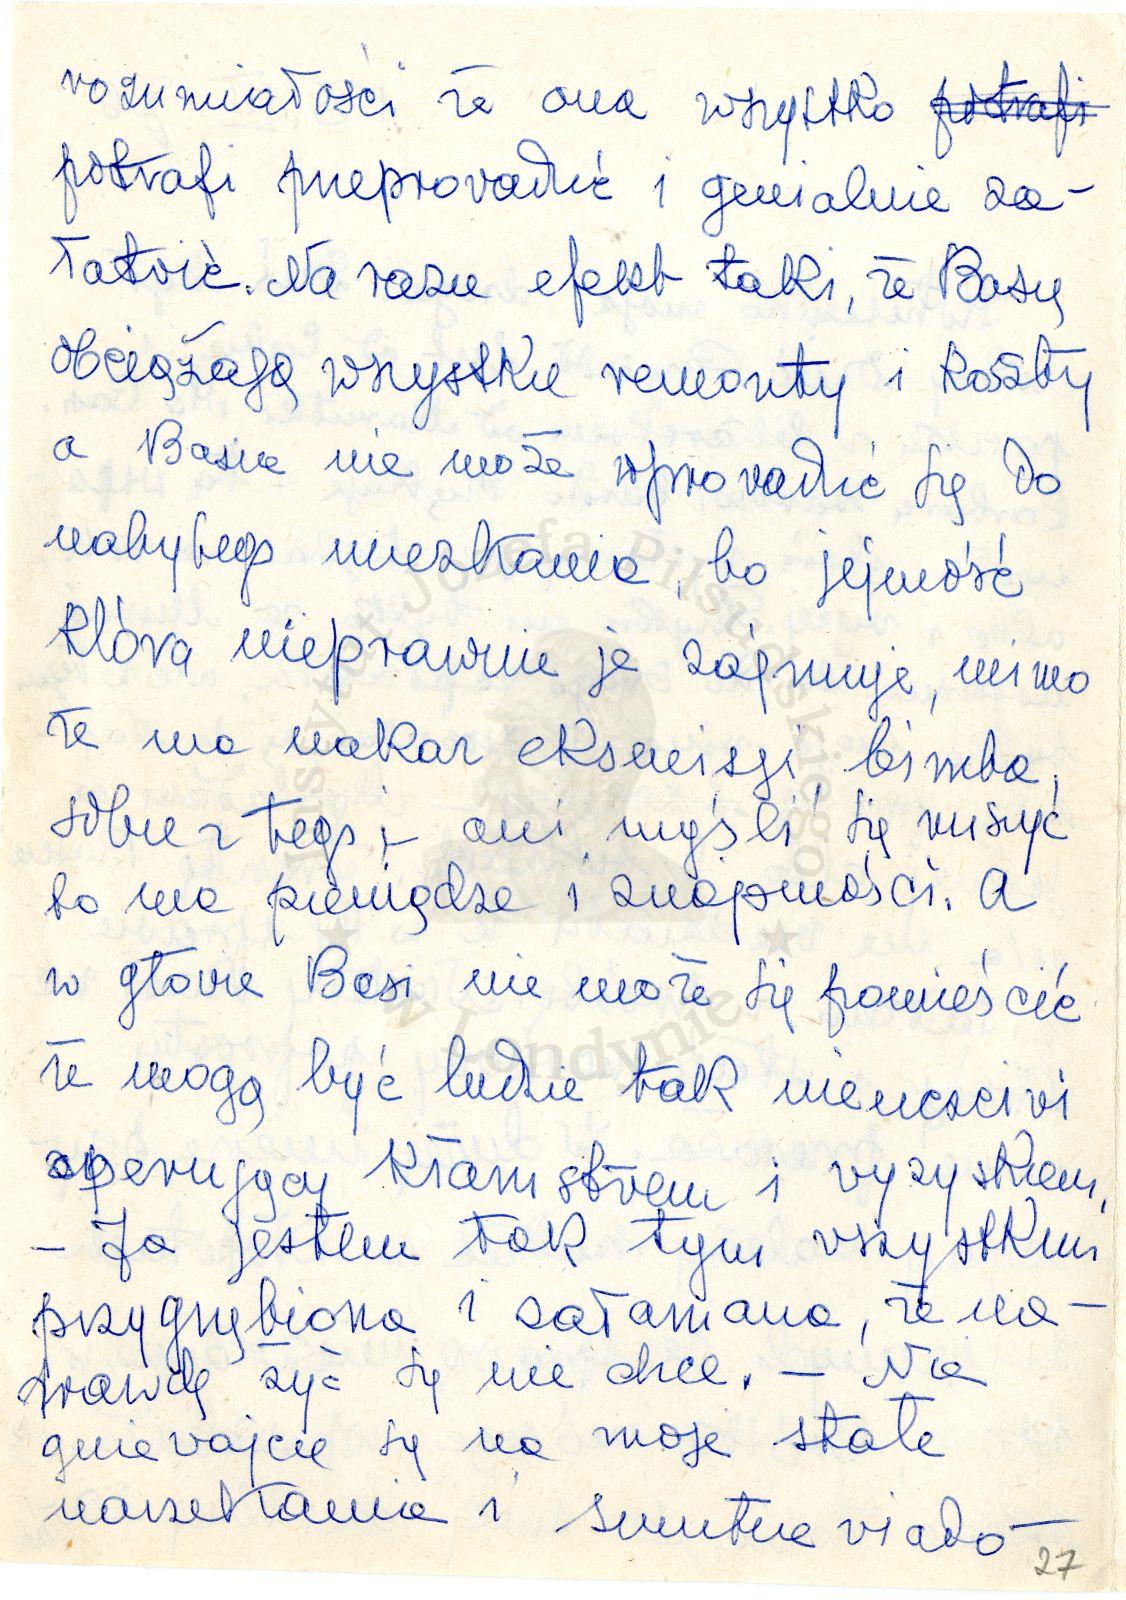 rozumiałości że ona wszystko potrafi
potrafi przeprowadzić i genialnie za-
łatwić. Na razie efekt taki, że Basię
obciążają wszystkie remonty i koszty
a Basia nie może wprowadzić się do
nabytego mieszkania, bo jejmość
która nieprawnie je zajmuje, mimo
że ma nakaz eksmisji, bimba,
sobie z tego i ani myśli się ruszyć
bo ma pieniądze i znajomości. A
w głowie Basi nie może się pomieścić
że mogą być ludzie tak nieuczciwi
operujący kłamstwem i wyzyskiem.
– Ja jestem tak tym wszystkim
przygnębiona i załamana, że na-
prawdę żyć się nie chce. – Nie
gniewajcie się na moje stałe
narzekania i smutne wiado-
27
Instytut Józefa Piłsudskiego
w Londynie